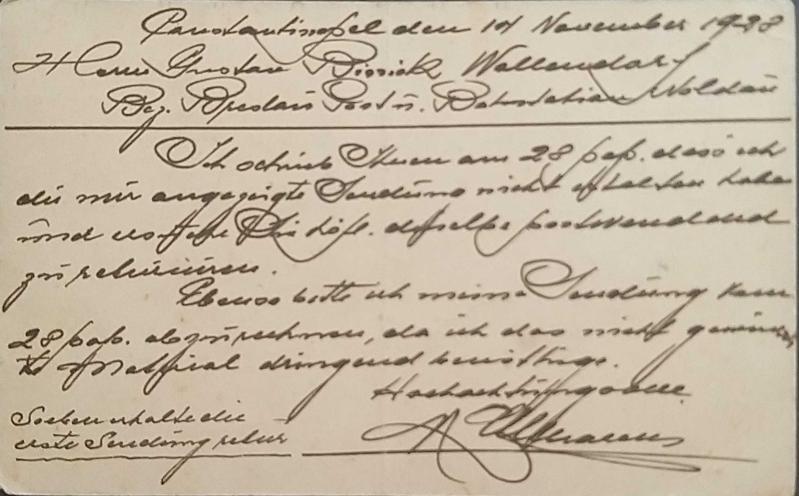 Constantinopel den 14 November 1928
Herrn Gustav Wallendorf
Bez. Breslau Post u. Bahnstation
Ich schrieb Ihnen am 28 pass. dass ich
die mir angezeigte Sendung nicht erhalten habe
und ersuche Sie höfl. dieselbe postwendend
zu retournieren.
Ebenso bitte ich meine Sendung vom
28 pass. abzurechnen, da ich das nicht
Material dringend benötige.
Hochachtungsvoll
Soeben erhalte die
erste Sendung retour